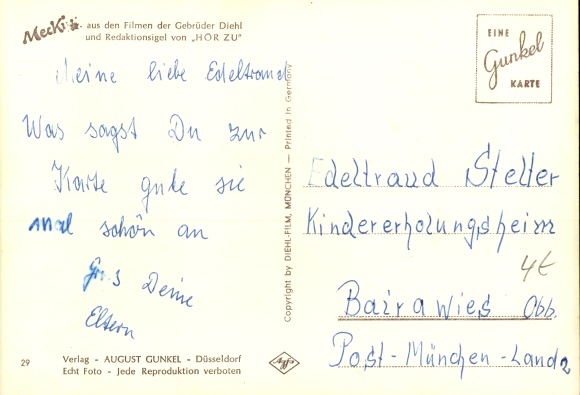 Mecki aus den Filmen der Gebrüder Diehl
und Redaktionsigel von „HÖR ZU"
Meine liebe Edeltraud
Was sagst Du zur
Karte guke sie
mal schön an
Grus Deine
Eltern
29
Verlag - AUGUST GUNKEL - Düsseldorf
Echt Foto - Jede Reproduktion verboten
Copyright by DIEHL-FILM, MÜNCHEN — Printed in Germany
Agfa
EINE
Gunkel
KARTE
Edeltraud Steller
Kindererholungsheim
4€
Bairawies Obb.
Post-München-Land 2